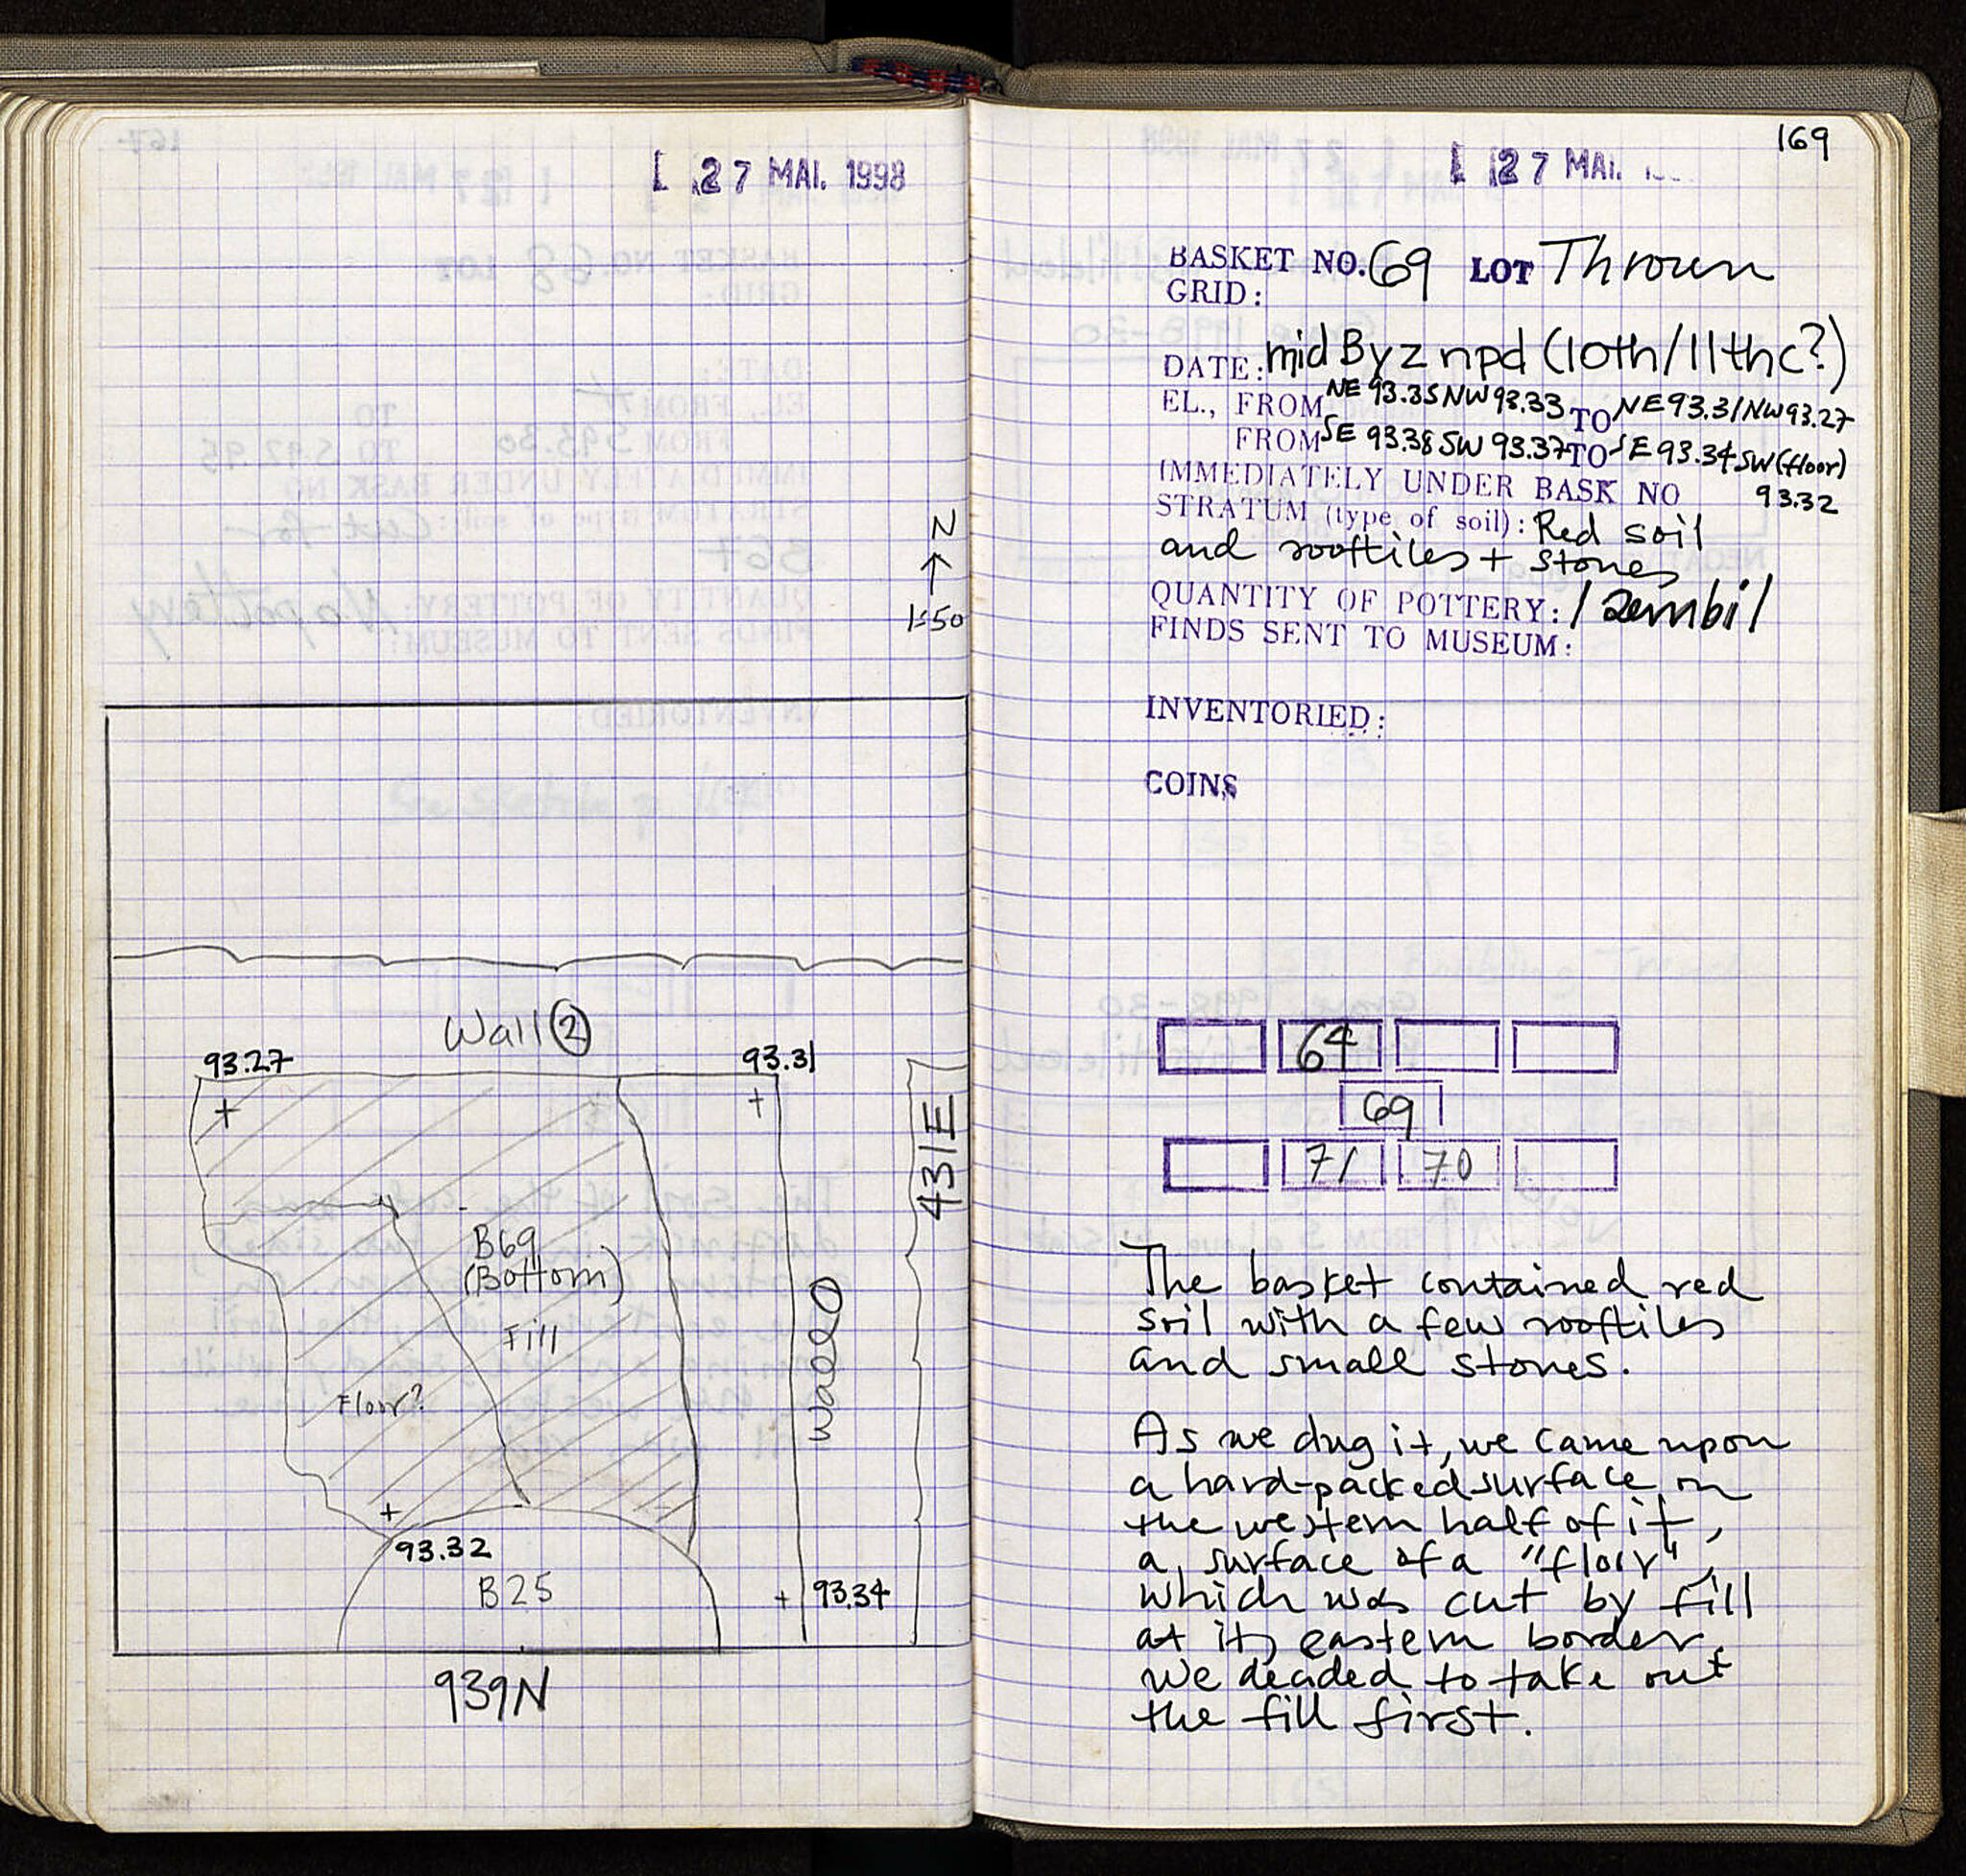 27 MAI. 1998
N
1:50
Wall 2
93.27
93.31
431E
B69
(Bottom)
Fill
Floor?
Wall
93.32
B25
93.34
939N
169
27 MAI.
BASKET NO. 69 LOT Thrown
GRID:
DATE: mid Byz npd (10th/11th c?)
EL., FROM NE 93.35 NW 93.33 TO NE 93.31/NW 93.27
FROM SE 93.38 SW 93.37 TO SE 93.34 SW (floor)
93.32
IMMEDIATELY UNDER BASK NO
STRATUM (type of soil): Red soil
and rooftiles + stones
QUANTITY OF POTTERY: 1 zembil
FINDS SENT TO MUSEUM:
INVENTORIED:
COINS
64
69
71 70
The basket contained red
soil with a few rooftiles
and small stones.
As we dug it, we came upon
a hard-packed surface in
the western half of it,
a surface of a "floor",
which was cut by fill
at its eastern border.
We decided to take out
the fill first.